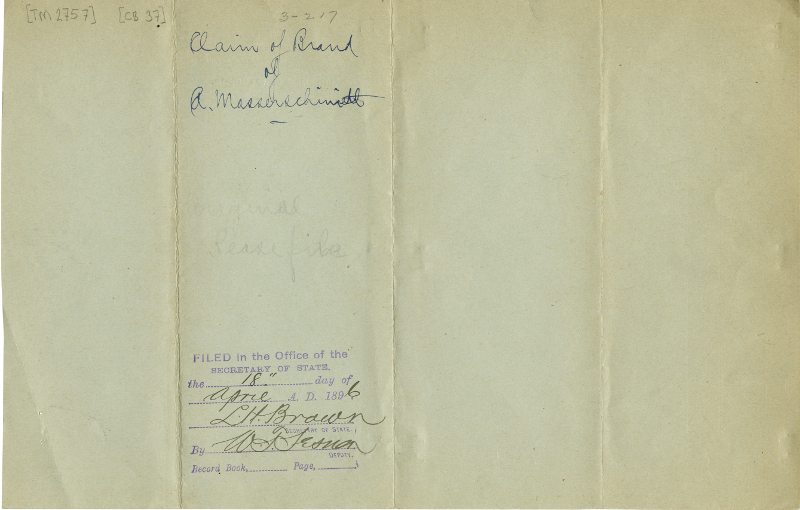 [TM 2757] [CB 37] 3-217
Claim of Brand
of
A. Masserschmidt
original
Please file
FILED in the Office of the
SECRETARY OF STATE.
the 18" day of
April A. D. 1896
L. H. Brown
SECRETARY OF STATE.
By
DEPUTY.
Record Book, Page,